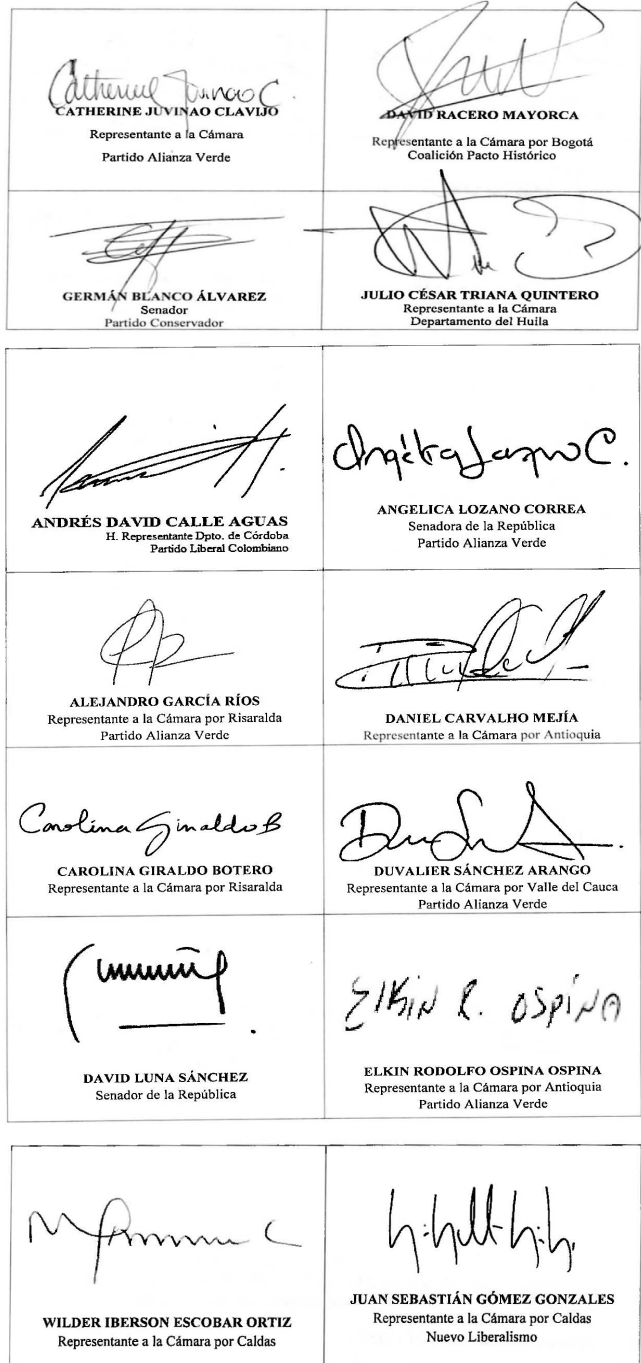 Catherine Juvinao C.
CATHERINE JUVINAO CLAVIJO
Representante a la Cámara
Partido Alianza Verde
DAVID RACERO MAYORCA
Representante a la Cámara por Bogotá
Coalición Pacto Histórico
GERMÁN BLANCO ÁLVAREZ
Senador
Partido Conservador
JULIO CÉSAR TRIANA QUINTERO
Representante a la Cámara
Departamento del Huila
ANDRÉS DAVID CALLE AGUAS
H. Representante Dpto. de Córdoba
Partido Liberal Colombiano
Angélica Lozano C.
ANGELICA LOZANO CORREA
Senadora de la República
Partido Alianza Verde
ALEJANDRO GARCÍA RÍOS
Representante a la Cámara por Risaralda
Partido Alianza Verde
DANIEL CARVALHO MEJÍA
Representante a la Cámara por Antioquia
Carolina Giraldo B
CAROLINA GIRALDO BOTERO
Representante a la Cámara por Risaralda
DUVALIER SÁNCHEZ ARANGO
Representante a la Cámara por Valle del Cauca
Partido Alianza Verde
DAVID LUNA SÁNCHEZ
Senador de la República
ELKIN R. OSPINA
ELKIN RODOLFO OSPINA OSPINA
Representante a la Cámara por Antioquia
Partido Alianza Verde
WILDER IBERSON ESCOBAR ORTIZ
Representante a la Cámara por Caldas
JUAN SEBASTIÁN GÓMEZ GONZALES
Representante a la Cámara por Caldas
Nuevo Liberalismo